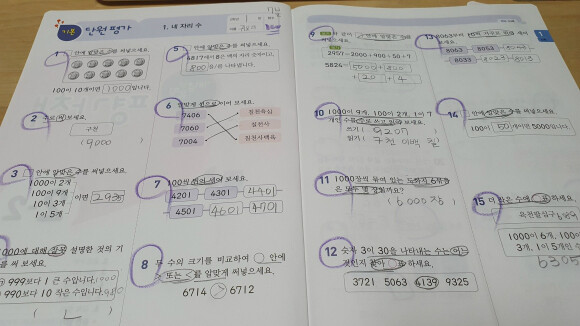 기본 단원 평가
1. 네 자리 수
1 안에 알맞은 수를 써넣으세요.
100이 10개이면 1000입니다.
2
구천
(9000)
3 안에 알맞은 수를
1000이 2개
100이 9개
10이 3개
1이 5개
이면 2935
1000에 대해 잘못 설명한 것의 기
를 써 보세요.
999보다 1 큰 수입니다.
990보다 10 작은 수입니다.
(ㄴ)
5
안에 알맞은 수를 써넣으세요.
800을 나타냅니다.
6 알맞게 선으로 이어 보세요.
7406
7060
7004
칠천육십
칠천사
칠천사백육
7 100씩 뛰어 세어 보세요.
4201 4301 4401
4501 4601 4701
8 두 수의 크기를 비교하여 안에
> 또는 <를 알맞게 써넣으세요.
6714 > 6712
9
2957=2000+900+50+7
5826=5000+800
+20+
10 1000이 9개, 100이 2개, 1이 7
개인 수를 쓰고 읽어 보세요.
쓰기 (9207)
읽기 (구천 이백 칠
11 1000장씩 묶여 있는 도화지 6묶음
은 모두 몇 장인가요?
(6000장)
12 숫자 3이 30을 나타내는 수는 어느
것인지 찾아 표 하세요.
3721 5063 4139 9325
13 8063부터
8063
8033 8023 8013
14
안에 알맞은 수를 써넣으세요.
100이 50개이면 5000입니다.
15 더 작은 수에 표 하세요.
육천팔십구
1000이 6개, 100이
3개, 1이 5개인 수
6305